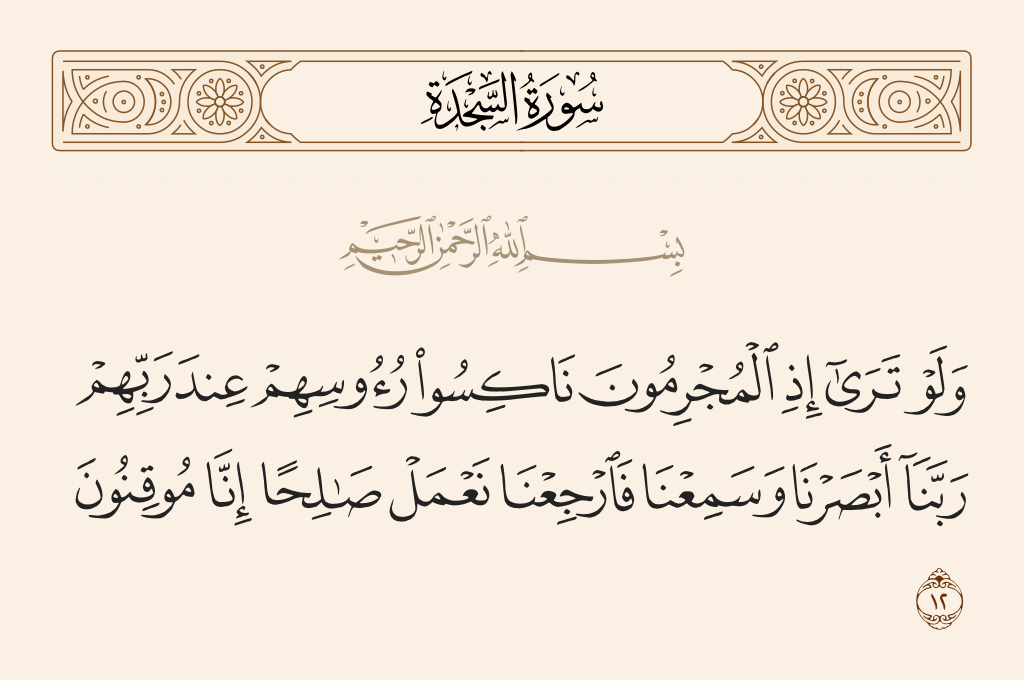 سُورَةُ السَّجْدَةِ
بِسْمِ ٱللَّهِ ٱلرَّحْمَٰنِ ٱلرَّحِيمِ
وَلَوْ تَرَىٰٓ إِذِ ٱلْمُجْرِمُونَ نَاكِسُوا۟ رُءُوسِهِمْ عِندَ رَبِّهِمْ
رَبَّنَآ أَبْصَرْنَا وَسَمِعْنَا فَٱرْجِعْنَا نَعْمَلْ صَـٰلِحًا إِنَّا مُوقِنُونَ
١٢